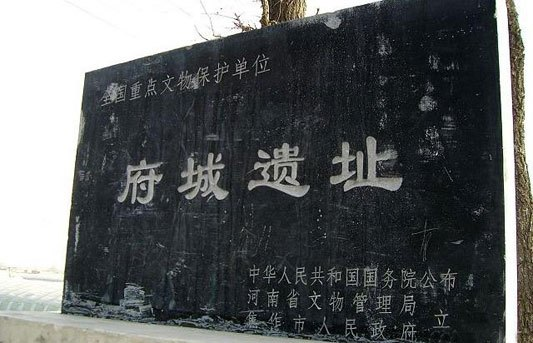 全国重点文物保护单位
府城遗址
中华人民共和国国务院公布
河南省文物管理局
焦作市人民政府 立